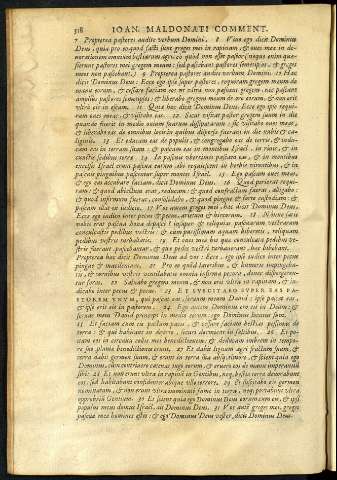 518 IOAN. MALDONATI COMMENT.
7 Propterea pastores audite verbum Domini. 8 Viuo ego dicit Dominus
Deus, quia pro eo quod facti sunt greges mei in rapinam, & oues meæ in de-
uorationem omnium bestiarum agri, eo quod non esset pastor (neque enim quæ-
sierunt pastores mei gregem meum: sed pascebant pastores semetipsos, & greges
meos non pascebant.) 9 Propterea pastores audite verbum Domini. 10 Hæc
dicit Dominus Deus: Ecce ego ipse super pastores, requiram gregem meum de
manu eorum, & cessare faciam eos vt vltra non pascant gregem, nec pascant
amplius pastores semetipsos: & liberabo gregem meum de ore eorum, & non erit
vltra eis in escam. 11 Quia hæc dicit Dominus Deus. Ecce ego ipse requi-
ram oues meas, & visitabo eas. 12 Sicut visitat pastor gregem suum in die
quando fuerit in medio ouium suarum dissipatarum: sic visitabo oues meas,
& liberabo eas de omnibus locis in quibus dispersæ fuerant in die nubis & ca-
liginis. 13 Et educam eas de populis, & congregabo eas de terris, & indu-
cam eas in terram suam: & pascam eas in montibus Israël, in riuis, & in
cunctis sedibus terræ. 14 In pascuis vberrimis pascam eas, & in montibus
excelsis Israël erunt pascua earum: ibi requiescent in herbis virentibus, & in
pascuis pinguibus pascentur super montes Israël. 15 Ego pascam oues meas,
& ego eas accubare faciam, dicit Dominus Deus. 16 Quod perierat requi-
ram, & quod abiectum erat, reducam: & quod confractum fuerat, alligabo:
& quod infirmum fuerat, consolidabo, & quod pingue & forte custodiam: &
pascam illas in iudicio. 17 Vos autem greges mei, hæc dicit Dominus Deus,
Ecce ego iudico inter pecus & pecus, arietum & hircorum. 18 Nonne satis
vobis erat pascua bona depasci? insuper & reliquias pascuarum vestrarum
conculcastis pedibus vestris: & cum purissimam aquam biberetis, reliquam
pedibus vestris turbabatis. 19 Et oues meæ his quæ conculcata pedibus ve-
stris fuerant, pascebantur, & quæ pedes vestri turbauerant, hæc bibebant.
Propterea hæc dicit Dominus Deus ad vos: Ecce, ego ipse iudico inter pecus
pingue & macilentum.
22 Saluabo gregem meum, & non erit vltra in rapinam, & iu-
dicabo inter pecus & pecus. 23 ET SVSCITABO SVPER EAS PA-
STOREM VNVM, qui pascat eas, seruum meum Dauid: ipse pascet eas,
& ipse erit eis in pastorem. 24 Ego autem Dominus ero eis in Deum: &
seruus meus Dauid princeps in medio eorum: ego Dominus locutus sum.
25 Et faciam cum eis pactum pacis, & cessare faciam bestias pessimas de
terra: & qui habitant in deserto, securi dormient in saltibus. 26 Et po-
nam eos in circuitu collis mei benedictionem: & deducam imbrem in tempo-
re suo pluuiæ benedictionis erunt. 27 Et dabit lignum agri fructum suum, &
terra dabit germen suum, & erunt in terra sua absque timore, & scient quia ego
Dominus, cum contriuero catenas iugi eorum, & eruero eos de manu imperantium
sibi. 28 Et non erunt vltra in rapinam in Gentibus, neque bestiæ terræ deuorabunt
eos, sed habitabunt confidenter absque vllo terrore. 29 Et suscitabo eis germen
nominatum, & non erunt vltra imminuti fame in terra, neque portabunt vltra
opprobrium Gentium. 30 Et scient quia ego Dominus Deus eorum cum eis, & ipsi
populus meus domus Israël, ait Dominus Deus. 31 Vos autem greges mei, greges
pascuæ meæ homines estis: & ego Dominus Deus vester, dicit Dominus Deus.